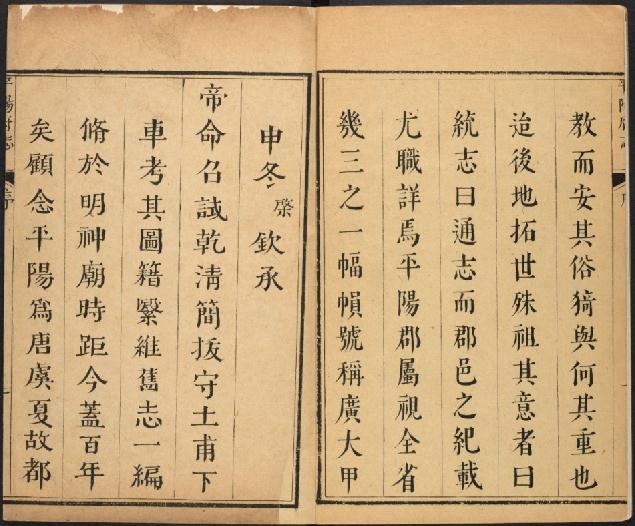 教而安其俗猗與何其重也
迨後地拓世殊祖其意者曰
統志曰通志而郡邑之紀載
尤職詳焉平陽郡屬視全省
幾三之一幅幀號稱廣大甲
申冬棨欽承
帝命召試乾清簡拔守土甫下
車考其圖籍緊維舊志一編
脩於明神廟時距今蓋百年
矣顧念平陽爲唐虞夏故都
平陽府志
序